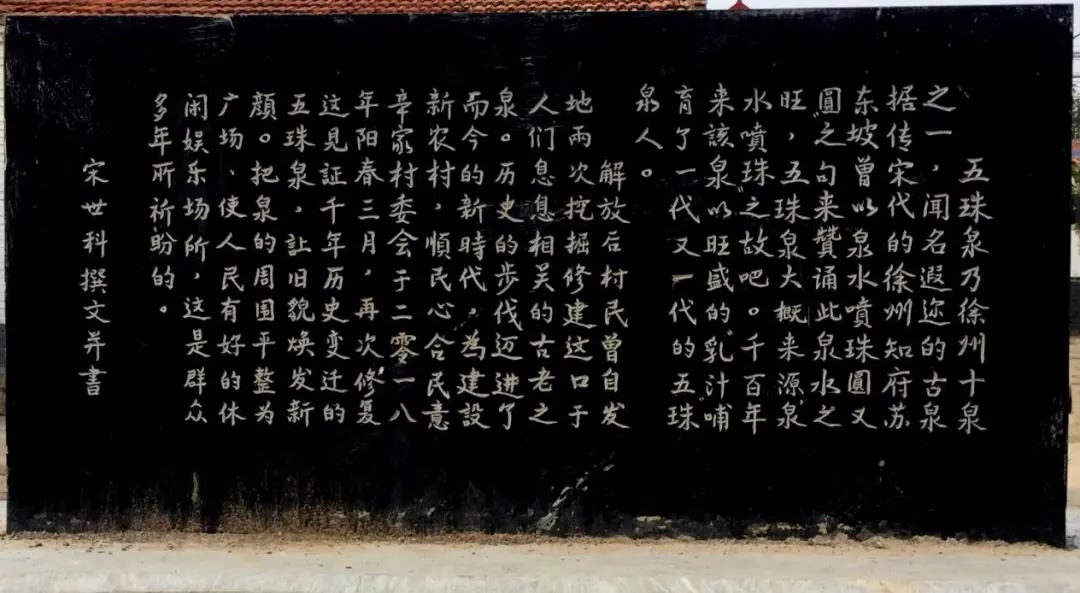 五珠泉乃徐州十泉
之一，闻名遐迩的古泉
据传宋代的徐州知府苏
东坡曾以泉水噴珠圓又
圓"之句来贊诵此泉水之
旺，"五珠泉大概来源"泉
水噴珠"之故吧。千百年
来该泉以旺盛的"乳汁"哺
育了一代又一代的五珠
泉人。
解放后村民曾自发
地两次挖掘修建这口于
人们息息相关的古老之
泉。历史的步伐迈进了
而今的新時代，為建設
新农村，順民心合民意
辛家村委会于二零一八
年阳春三月，再次修复
这见証千年历史变迁的
五珠泉，让旧貌焕发新
顏。把泉的周围平整为
广场、使人民有好的休
闲娱乐场所，这是群众
多年所祈盼的。
宋世科撰文并書